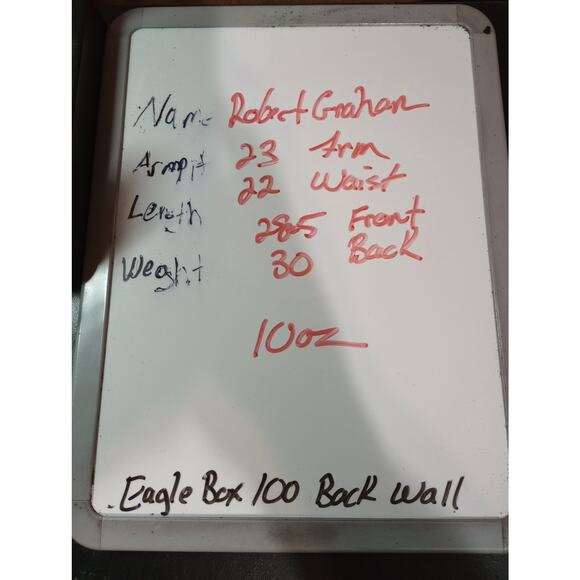 Name Robert Graham
Armpit 23 Arm
22 Waist
Length 28.5 Front
Weight 30 Back
10oz
Eagle Box 100 Back Wall